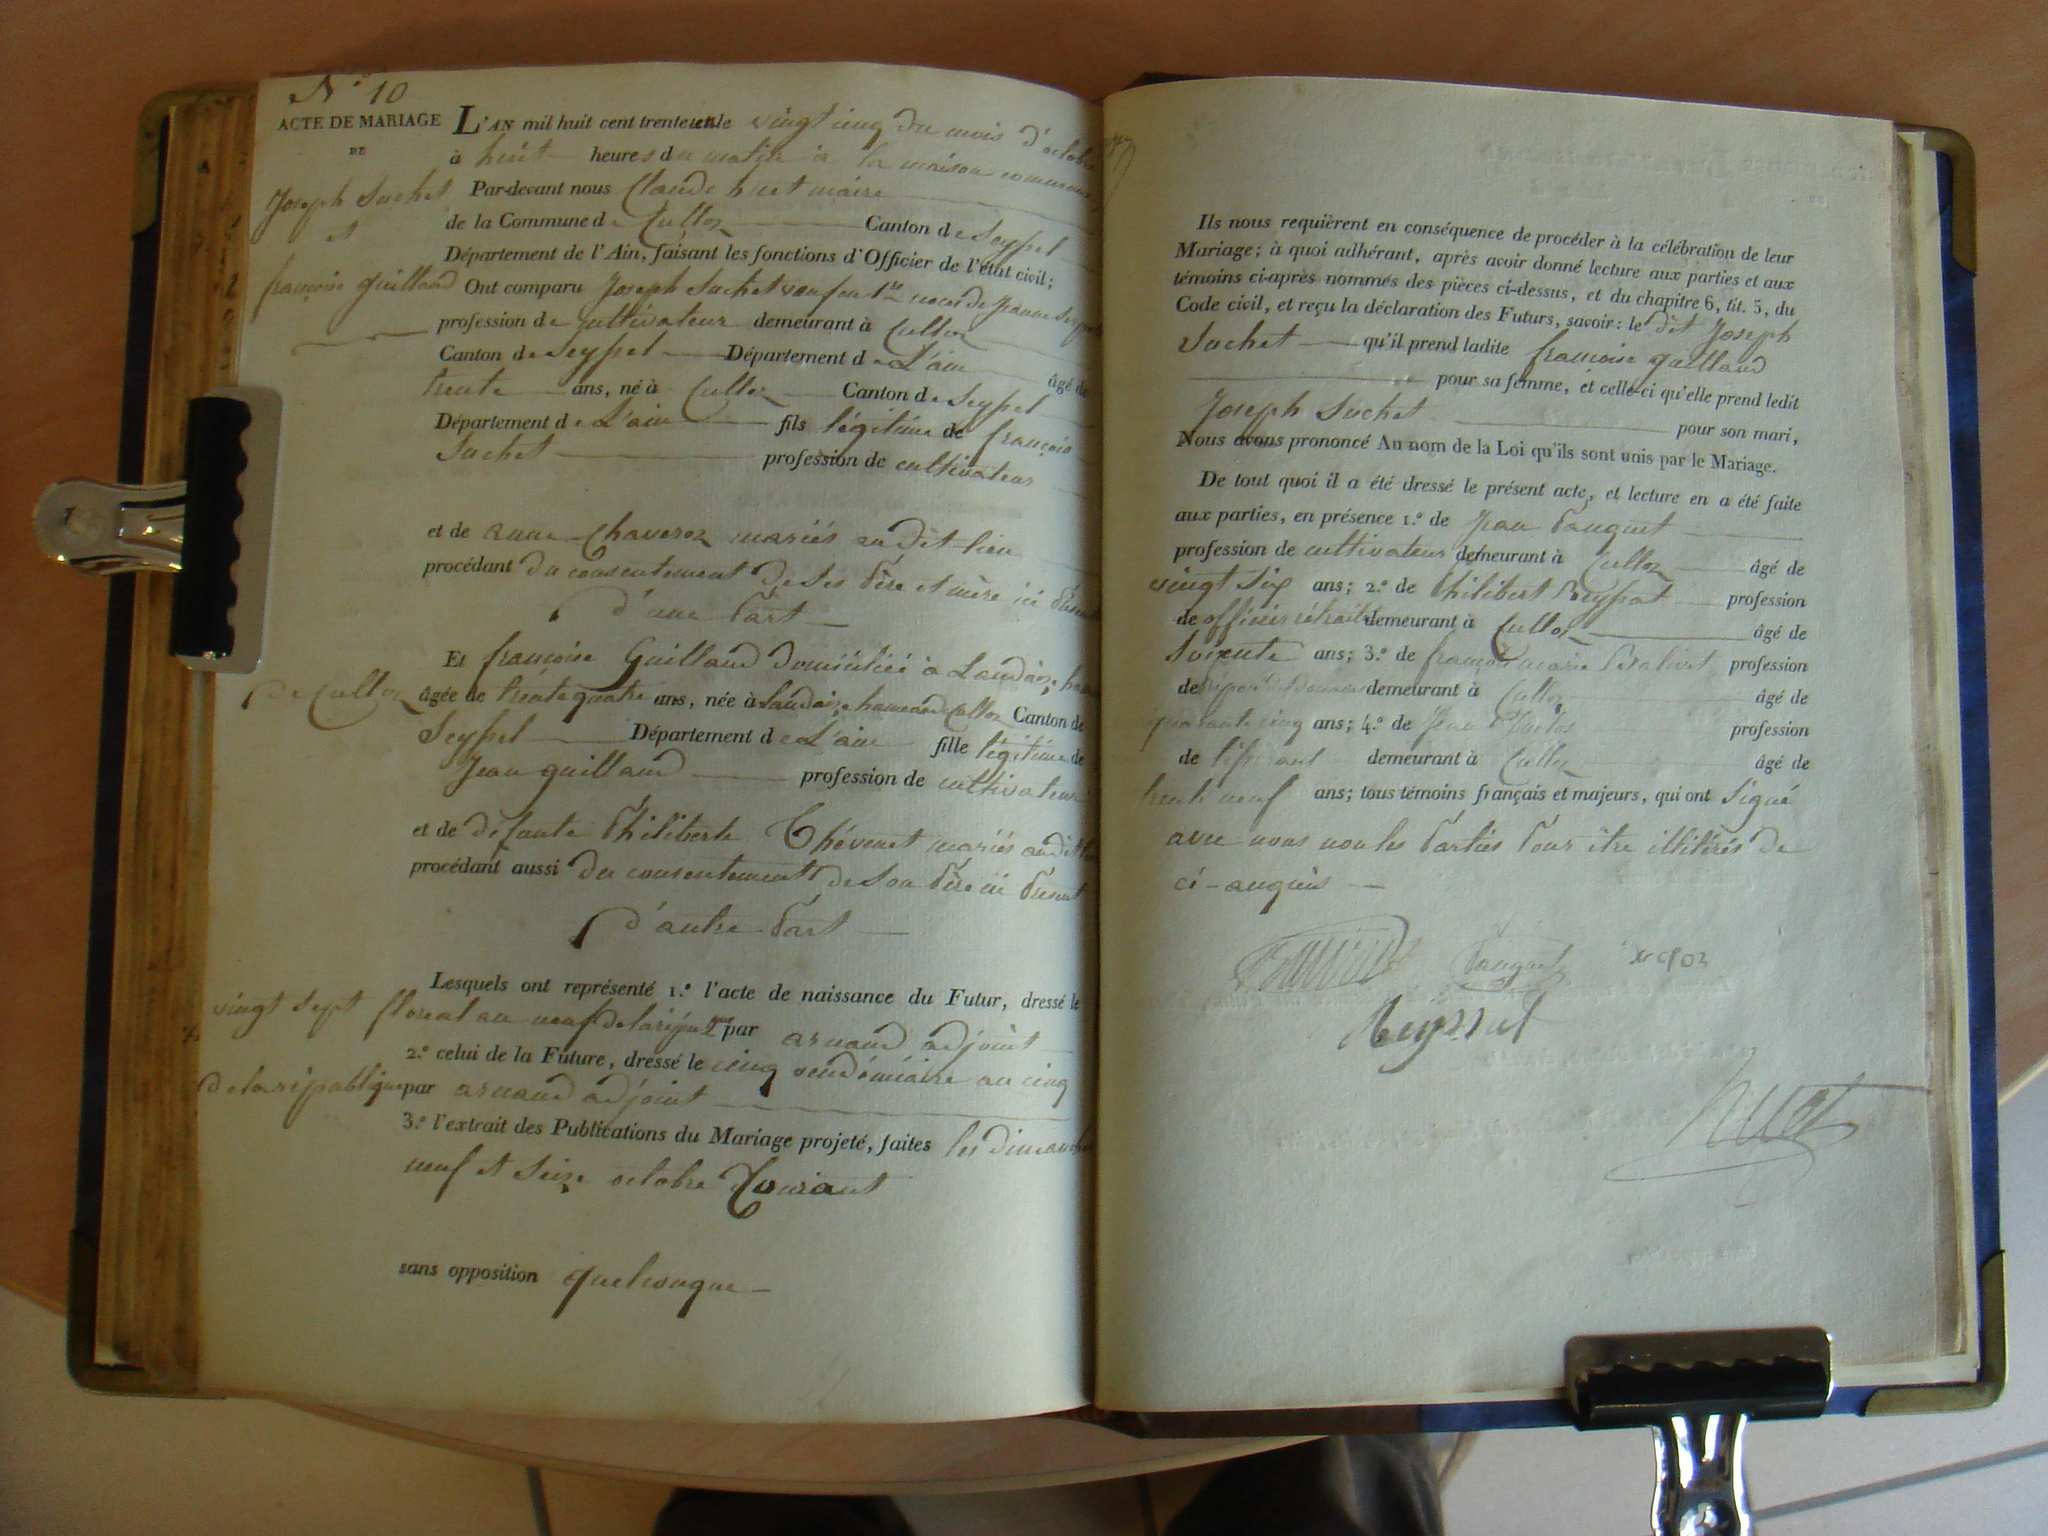 N° 10
ACTE DE MARIAGE
DE
Joseph Suchet
et
françoise guilland
L'AN mil huit cent trente un le vingt cinq du mois d'octobre
à huit heures du matin à la maison commune
Par-devant nous Claude huet maire
de la Commune de Culloz Canton de Seyssel
Département de l'Ain, faisant les fonctions d'Officier de l'état civil;
Ont comparu Joseph Suchet veuf en 1res noces de Jeanne
profession de cultivateur demeurant à Culloz
Canton de Seyssel Département de L'ain âgé de
trente ans, né à Culloz Canton de Seyssel
Département de L'ain fils légitime de françois
Suchet profession de cultivateur
et de anne Chaveroz mariés au dit lieu
procédant du consentement de ses père et mère ici présents
d'une part
Et françoise Guilland domiciliée à Landaize hameau
de Culloz âgée de trente quatre ans, née à Landaize hameau de Culloz Canton de
Seyssel Département de L'ain fille légitime de
Jean guilland profession de cultivateur
et de défunte Philiberte Thévenet mariés au dit lieu
procédant aussi du consentement de son père ici présent
d'autre part
Lesquels ont représenté 1.° l'acte de naissance du Futur, dressé le
vingt sept floreal an neuf de la répuque par arnaud adjoint
2.° celui de la Future, dressé le cinq vendémiaire an cinq
de la république par arnaud adjoint
3.° l'extrait des Publications du Mariage projeté, faites les dimanches
neuf et seize octobre Courant
sans opposition quelconque
Ils nous requièrent en conséquence de procéder à la célébration de leur
Mariage; à quoi adhérant, après avoir donné lecture aux parties et aux
témoins ci-après nommés des pièces ci-dessus, et du chapitre 6, tit. 5, du
Code civil, et reçu la déclaration des Futurs, savoir: le dit Joseph
Suchet qu'il prend ladite françoise guilland
pour sa femme, et celle-ci qu'elle prend ledit
Joseph Suchet pour son mari,
Nous avons prononcé Au nom de la Loi qu'ils sont unis par le Mariage.
De tout quoi il a été dressé le présent acte, et lecture en a été faite
aux parties, en présence 1.° de Jean Pauguet
profession de cultivateur demeurant à Culloz âgé de
vingt six ans; 2.° de Philibert Peyssat profession
de officier rétraité demeurant à Culloz âgé de
soixente ans; 3.° de françois marie profession
de demeurant à Culloz âgé de
quarante cinq ans; 4.° de Jean profession
de tisserant demeurant à Culloz âgé de
trente neuf ans; tous témoins français et majeurs, qui ont signé
avec nous non les parties pour être illitérés de
ce enquis
Pauguet
huet